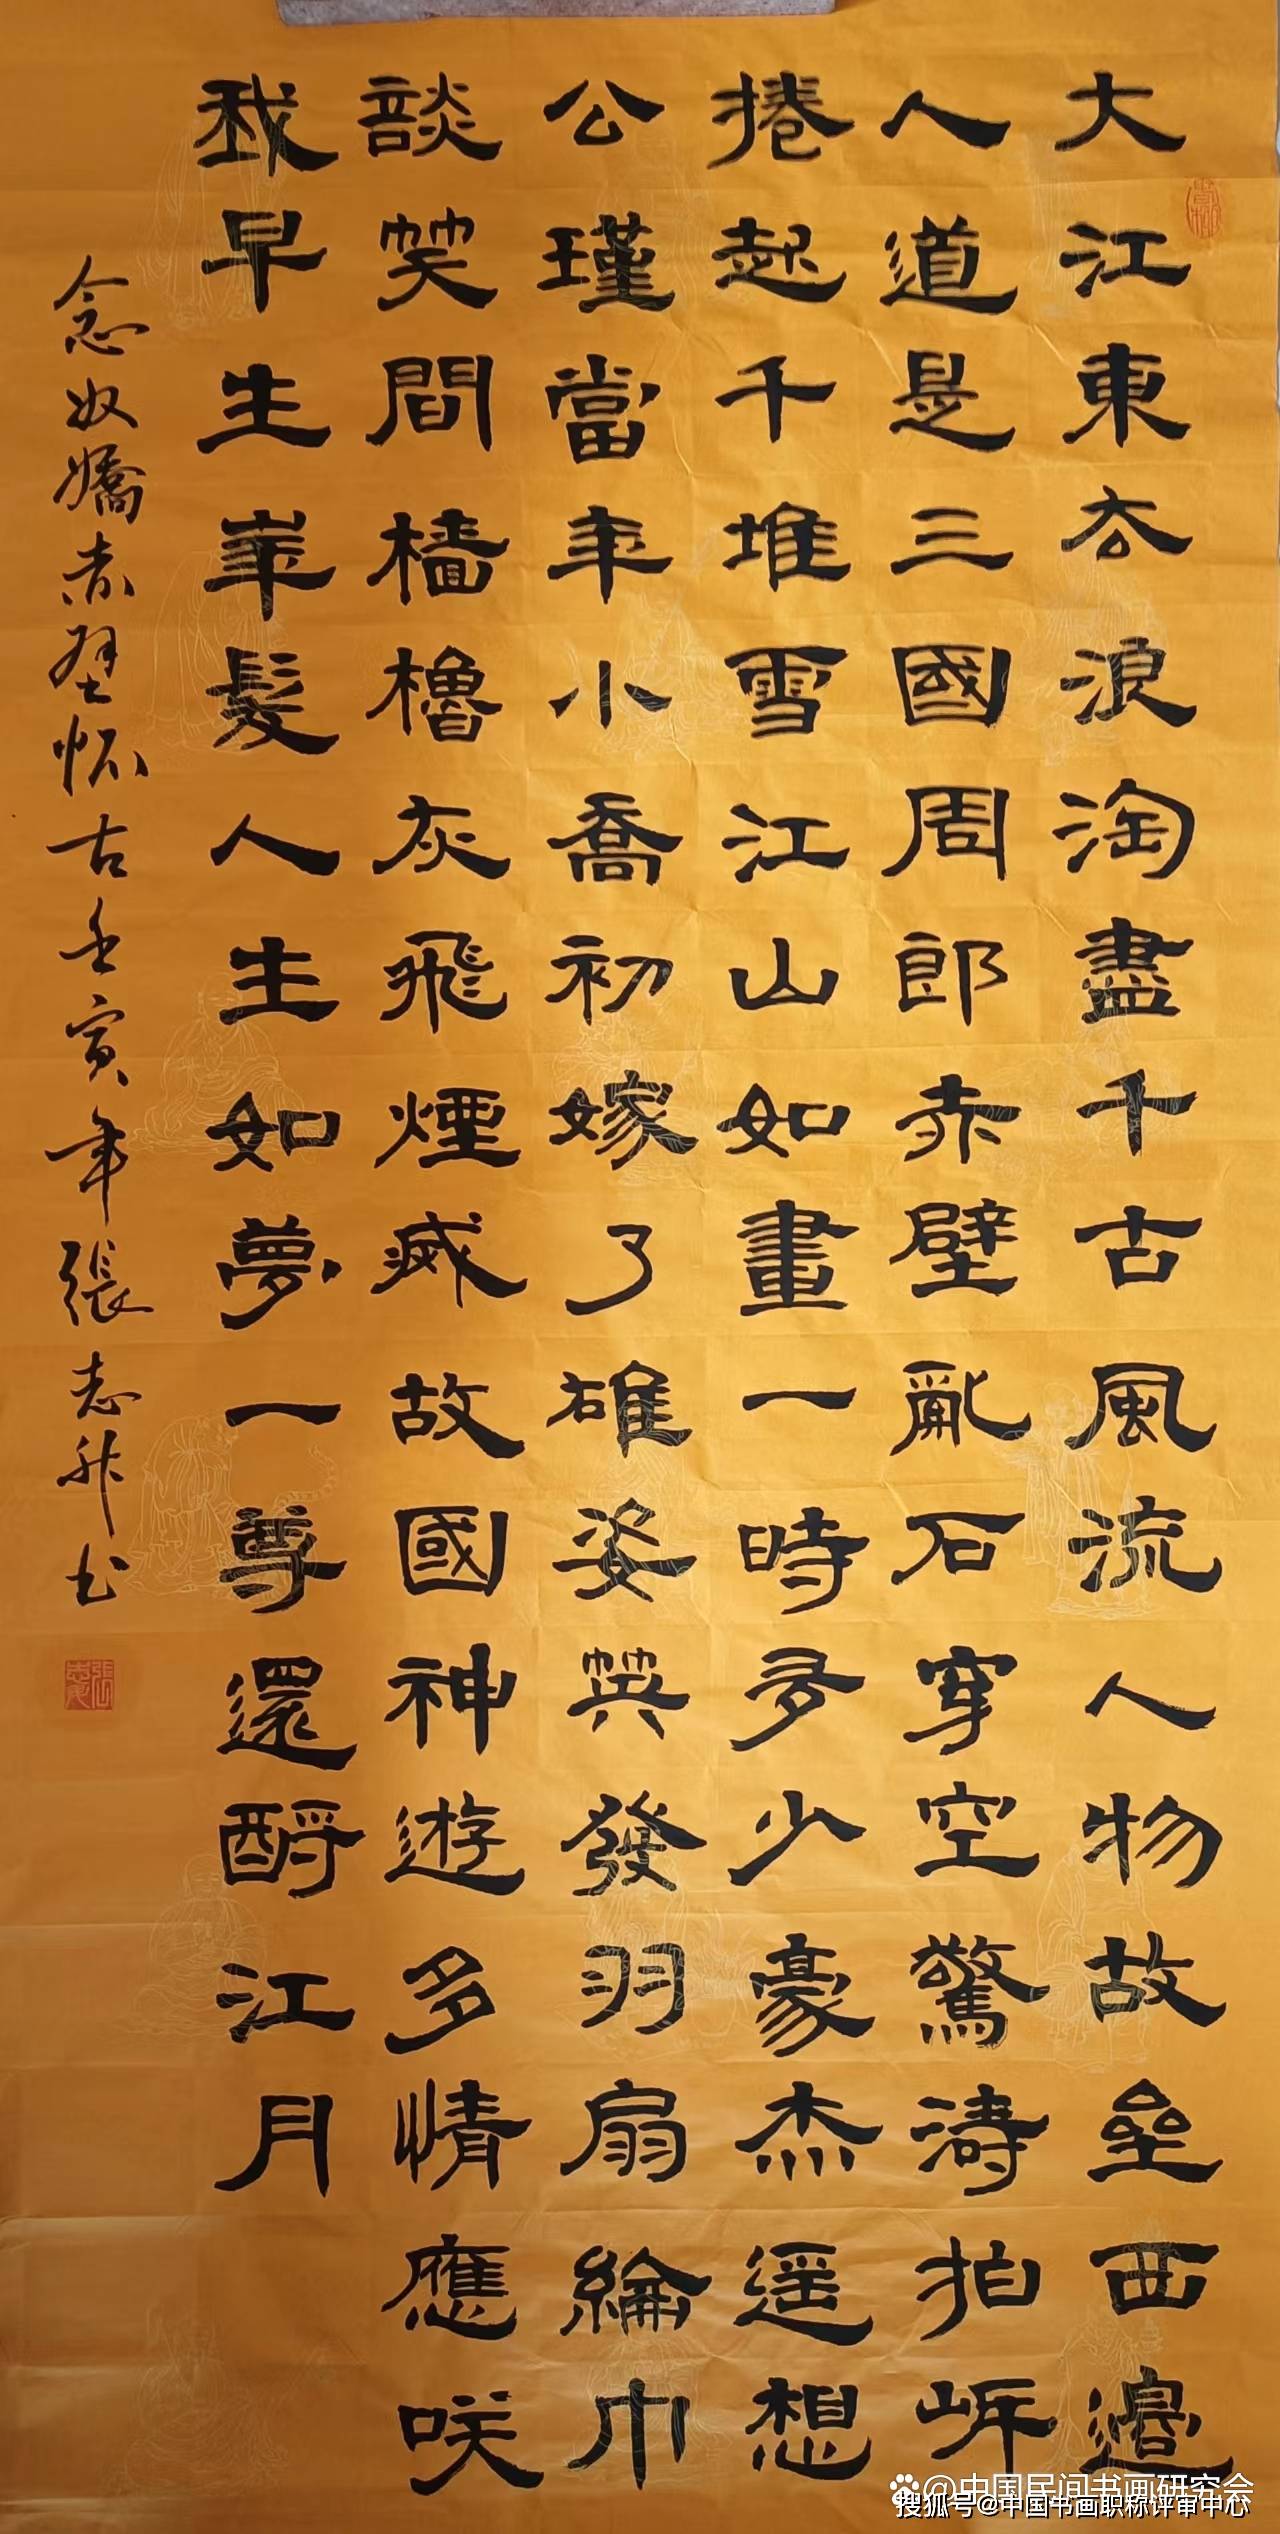 大江東去浪淘盡千古風流人物故壘西邊
人道是三國周郎赤壁亂石穿空驚濤拍岸
捲起千堆雪江山如畫一時多少豪杰遥想
公瑾當年小喬初嫁了雄姿英發羽扇綸巾
談笑間檣櫓灰飛煙滅故國神遊多情應咲
我早生華髮人生如夢一尊還酹江月
念奴嬌赤壁怀古壬寅年張志升书
@中国民间书画研究会
搜狐号@中国书画职称评审中心